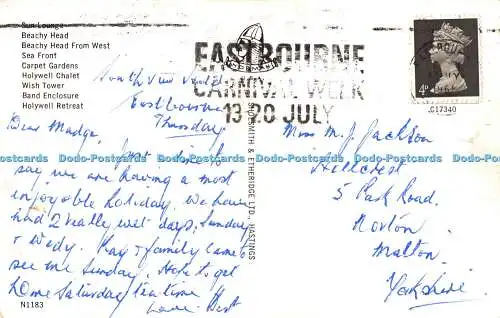 Sun Lounge
Beachy Head
Beachy Head From West
Sea Front
Carpet Gardens
Holywell Chalet
Wish Tower
Band Enclosure
Holywell Retreat
EASTBOURNE
CARNIVAL WEEK
13-20 JULY
4D
.C17340
South View
Eastbourne
Thursday
Dear Madge,
Just to
say we are having a most
enjoyable holiday. We have
had 2 really wet days, Sunday
& Wedy. Kay & family came to
see me Sunday. Hope to get
home Saturday tea time
Love. Bert
N1183
SHOESMITH & ETHERIDGE LTD., HASTINGS
Miss M. J. Jackson
Hellcrest
5 Park Road.
Norton
Malton.
Yorkshire
Dodo-Postcards Dodo-Postcards Dodo-Postcards Dodo-Postcards Dodo-Postcards Dodo-Postcards